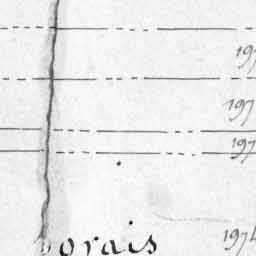 197
197
197
orais 1974